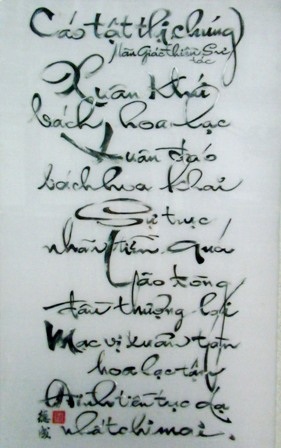 Cáo tật thị chúng
Mãn Giác thiền sư
tác
Xuân khứ
bách hoa lạc
Xuân đáo
bách hoa khai
Sự trục
nhãn tiền quá
Lão tòng
đầu thượng lai
Mạc vị xuân tàn
hoa lạc tận
Đình tiền tạc dạ
nhất chi mai